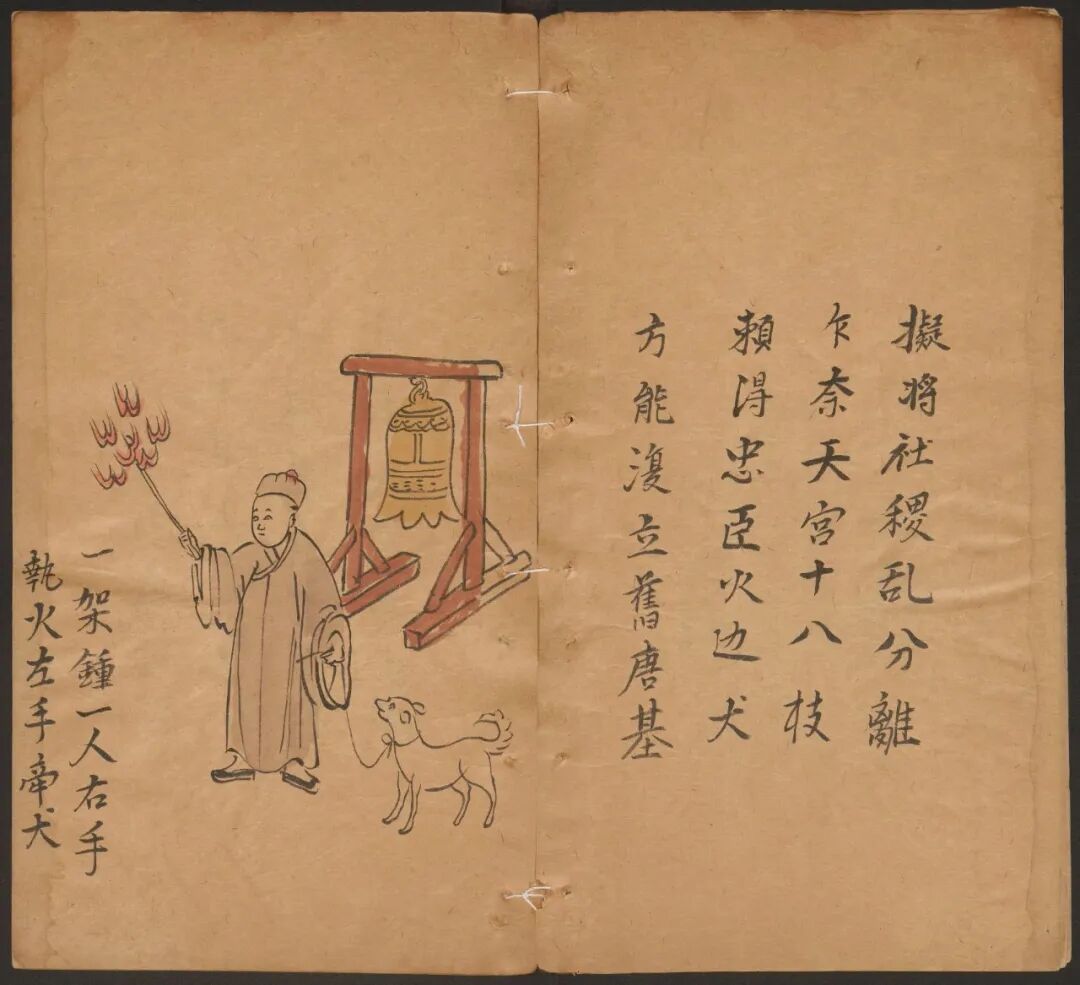 擬将社稷乱分離
乍奈天宫十八枝
頼得忠臣火边犬
方能復立舊唐基
一架鍾一人右手
執火左手牵犬